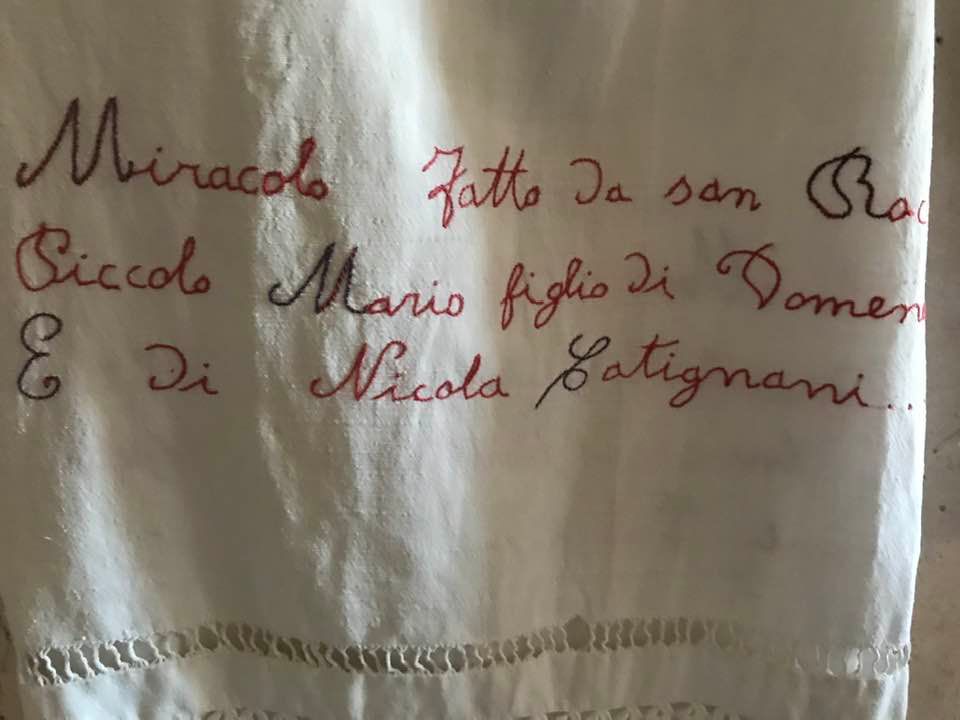 Miracolo Fatto da san Roc
Piccolo Mario figlio di Domen
E di Nicola Catignani...